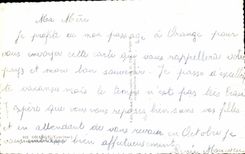 Mon Mère
Je profite de mon passage à Orange pour
vous envoyer cette carte qui vous rappellera votre
pays et mon bon souvenir. Je passe d'excellentes
vacances mais le temps n'est pas très beau
J'espère que vous vous reposez bien sans vos filles
et en attendant de vous revoir en Octobre je
bien affectueusement